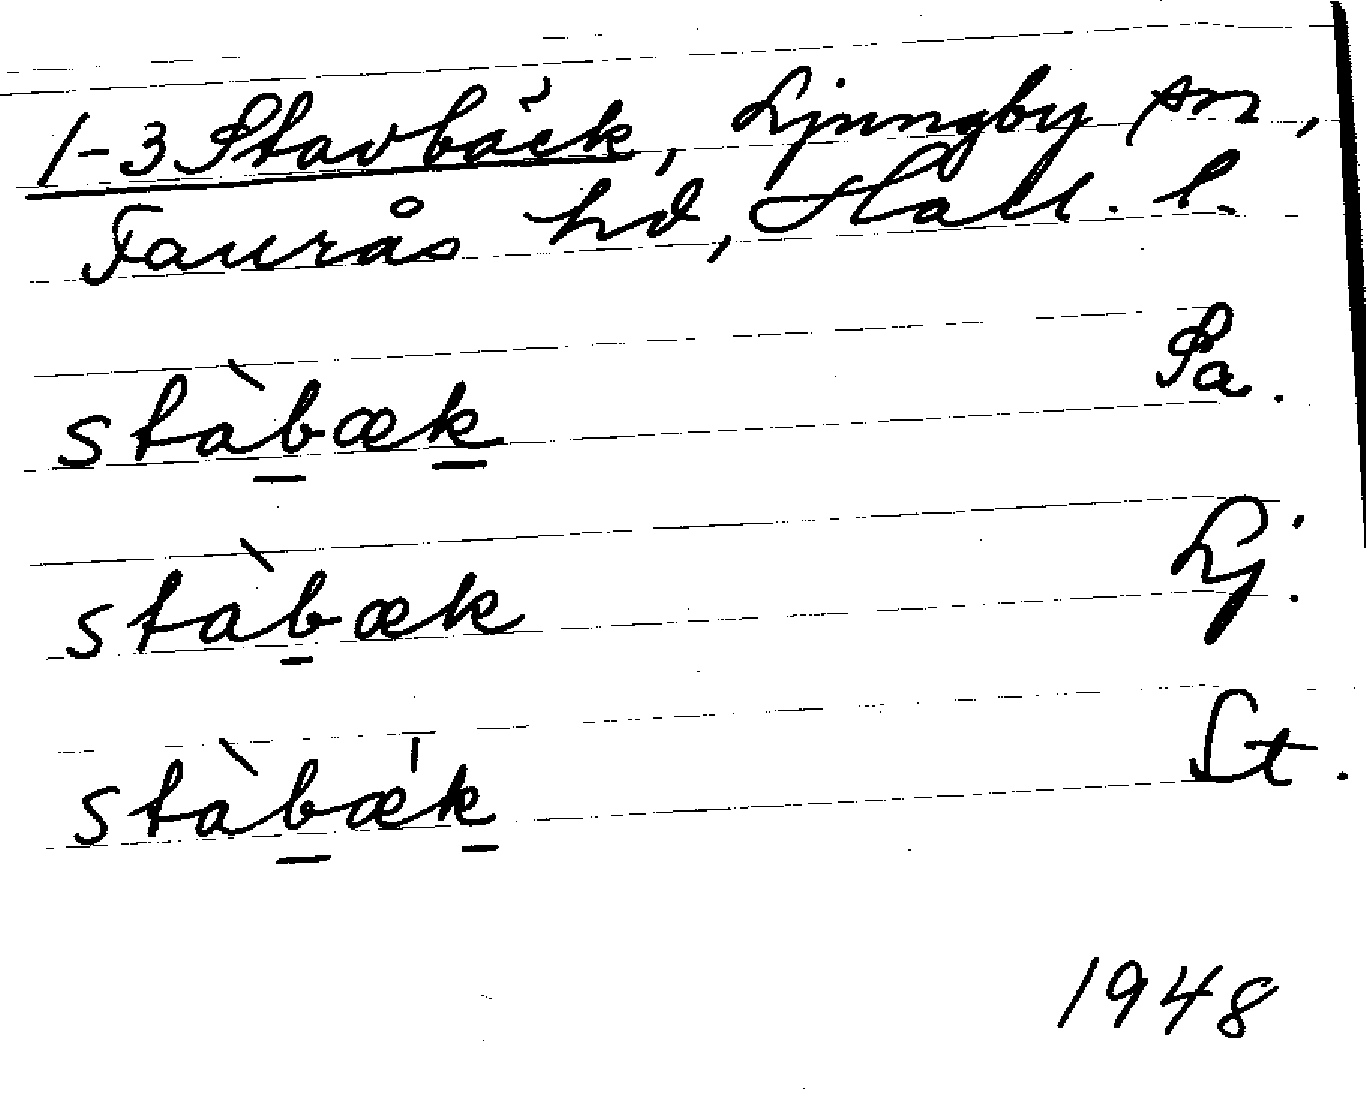 1-3 Stavbäck, Ljungby sn,
Faurås hd, Hall. l.
stàbæk Sa.
stàbæk Lj.
stàbæk St.
1948